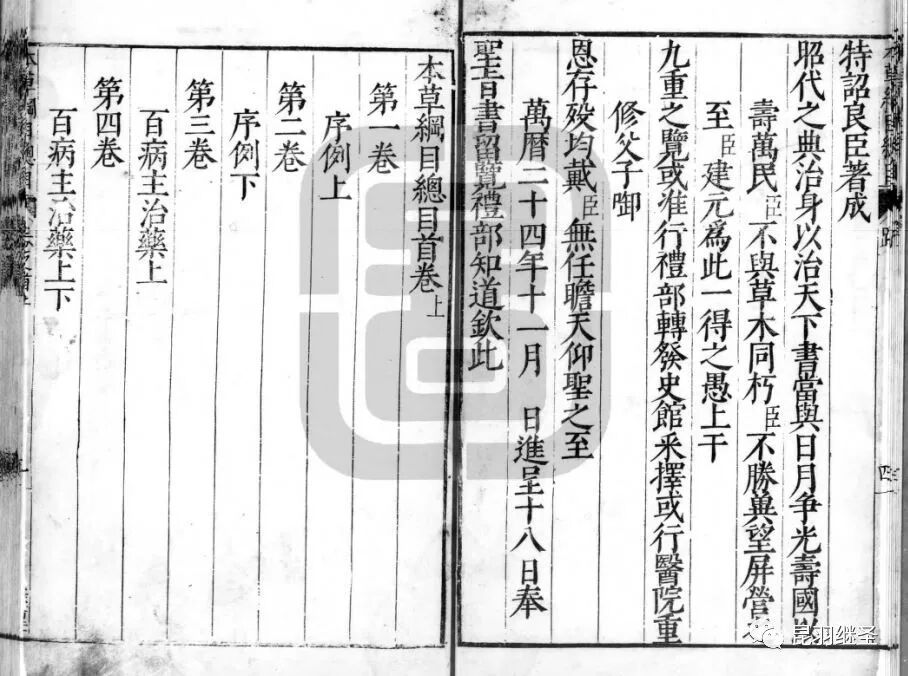 特詔良臣著成
昭代之典治身以治天下書當與日月争光壽國以
壽萬民臣不與草木同朽臣不勝兾望屏營
至臣建元爲此一得之愚上干
九重之覽或准行禮部轉發史館采擇或行醫院重
修父子啣
恩存殁均戴臣無任瞻天仰聖之至
萬曆二十四年十一月 日進呈十八日奉
聖旨書畱覽禮部知道欽此
本草綱目總目首卷上
第一卷
序例上
第二卷
序例下
第三卷
百病主治藥上
第四卷
百病主治藥上下
昆羽继圣